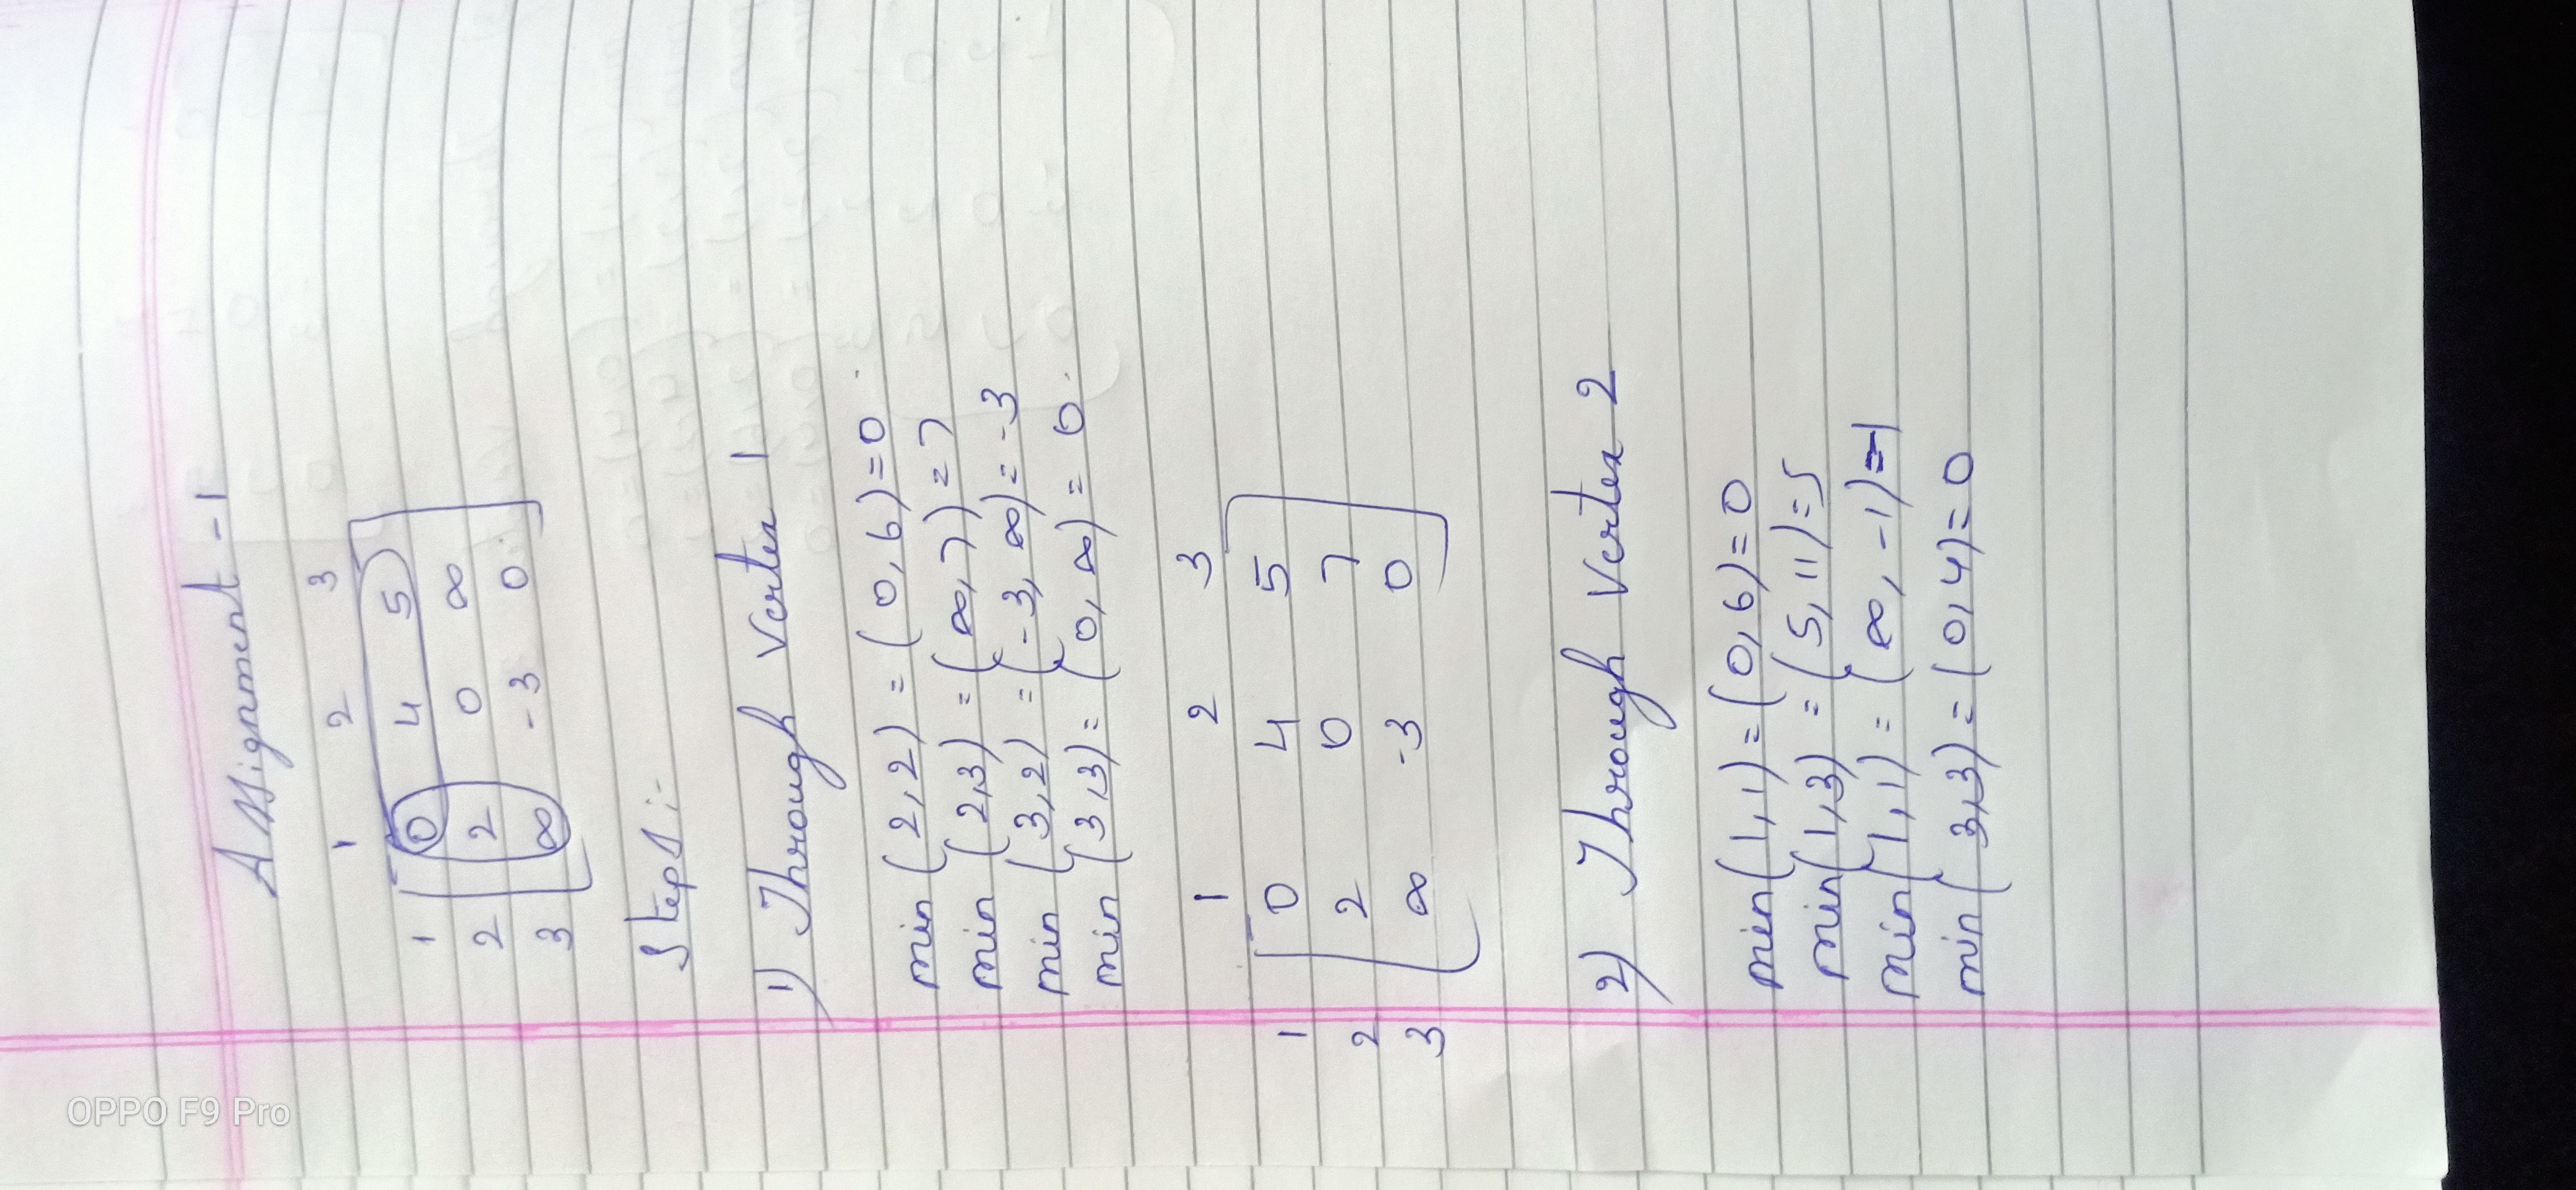 OPPO F9 Pro
Assignment - 1
1 2 3
1 0 4 5
2 2 0 ∞
3 ∞ -3 0
Steps:-
1) Through Vertex 1
min (2,2) = (0,6)=0
min (2,3) = (∞,7)=7
min (3,2) = (-3, ∞)= -3
min (3,3)= (0, ∞) = 0
1 2 3
1 0 4 5
2 2 0 7
3 ∞ -3 0
2) Through Vertex 2
min(1,1)=(0,6)=0
min(1,3) =(5,11)=5
min(1,1)= (∞, -1)=-1
min(3,3)=(0,4)=0